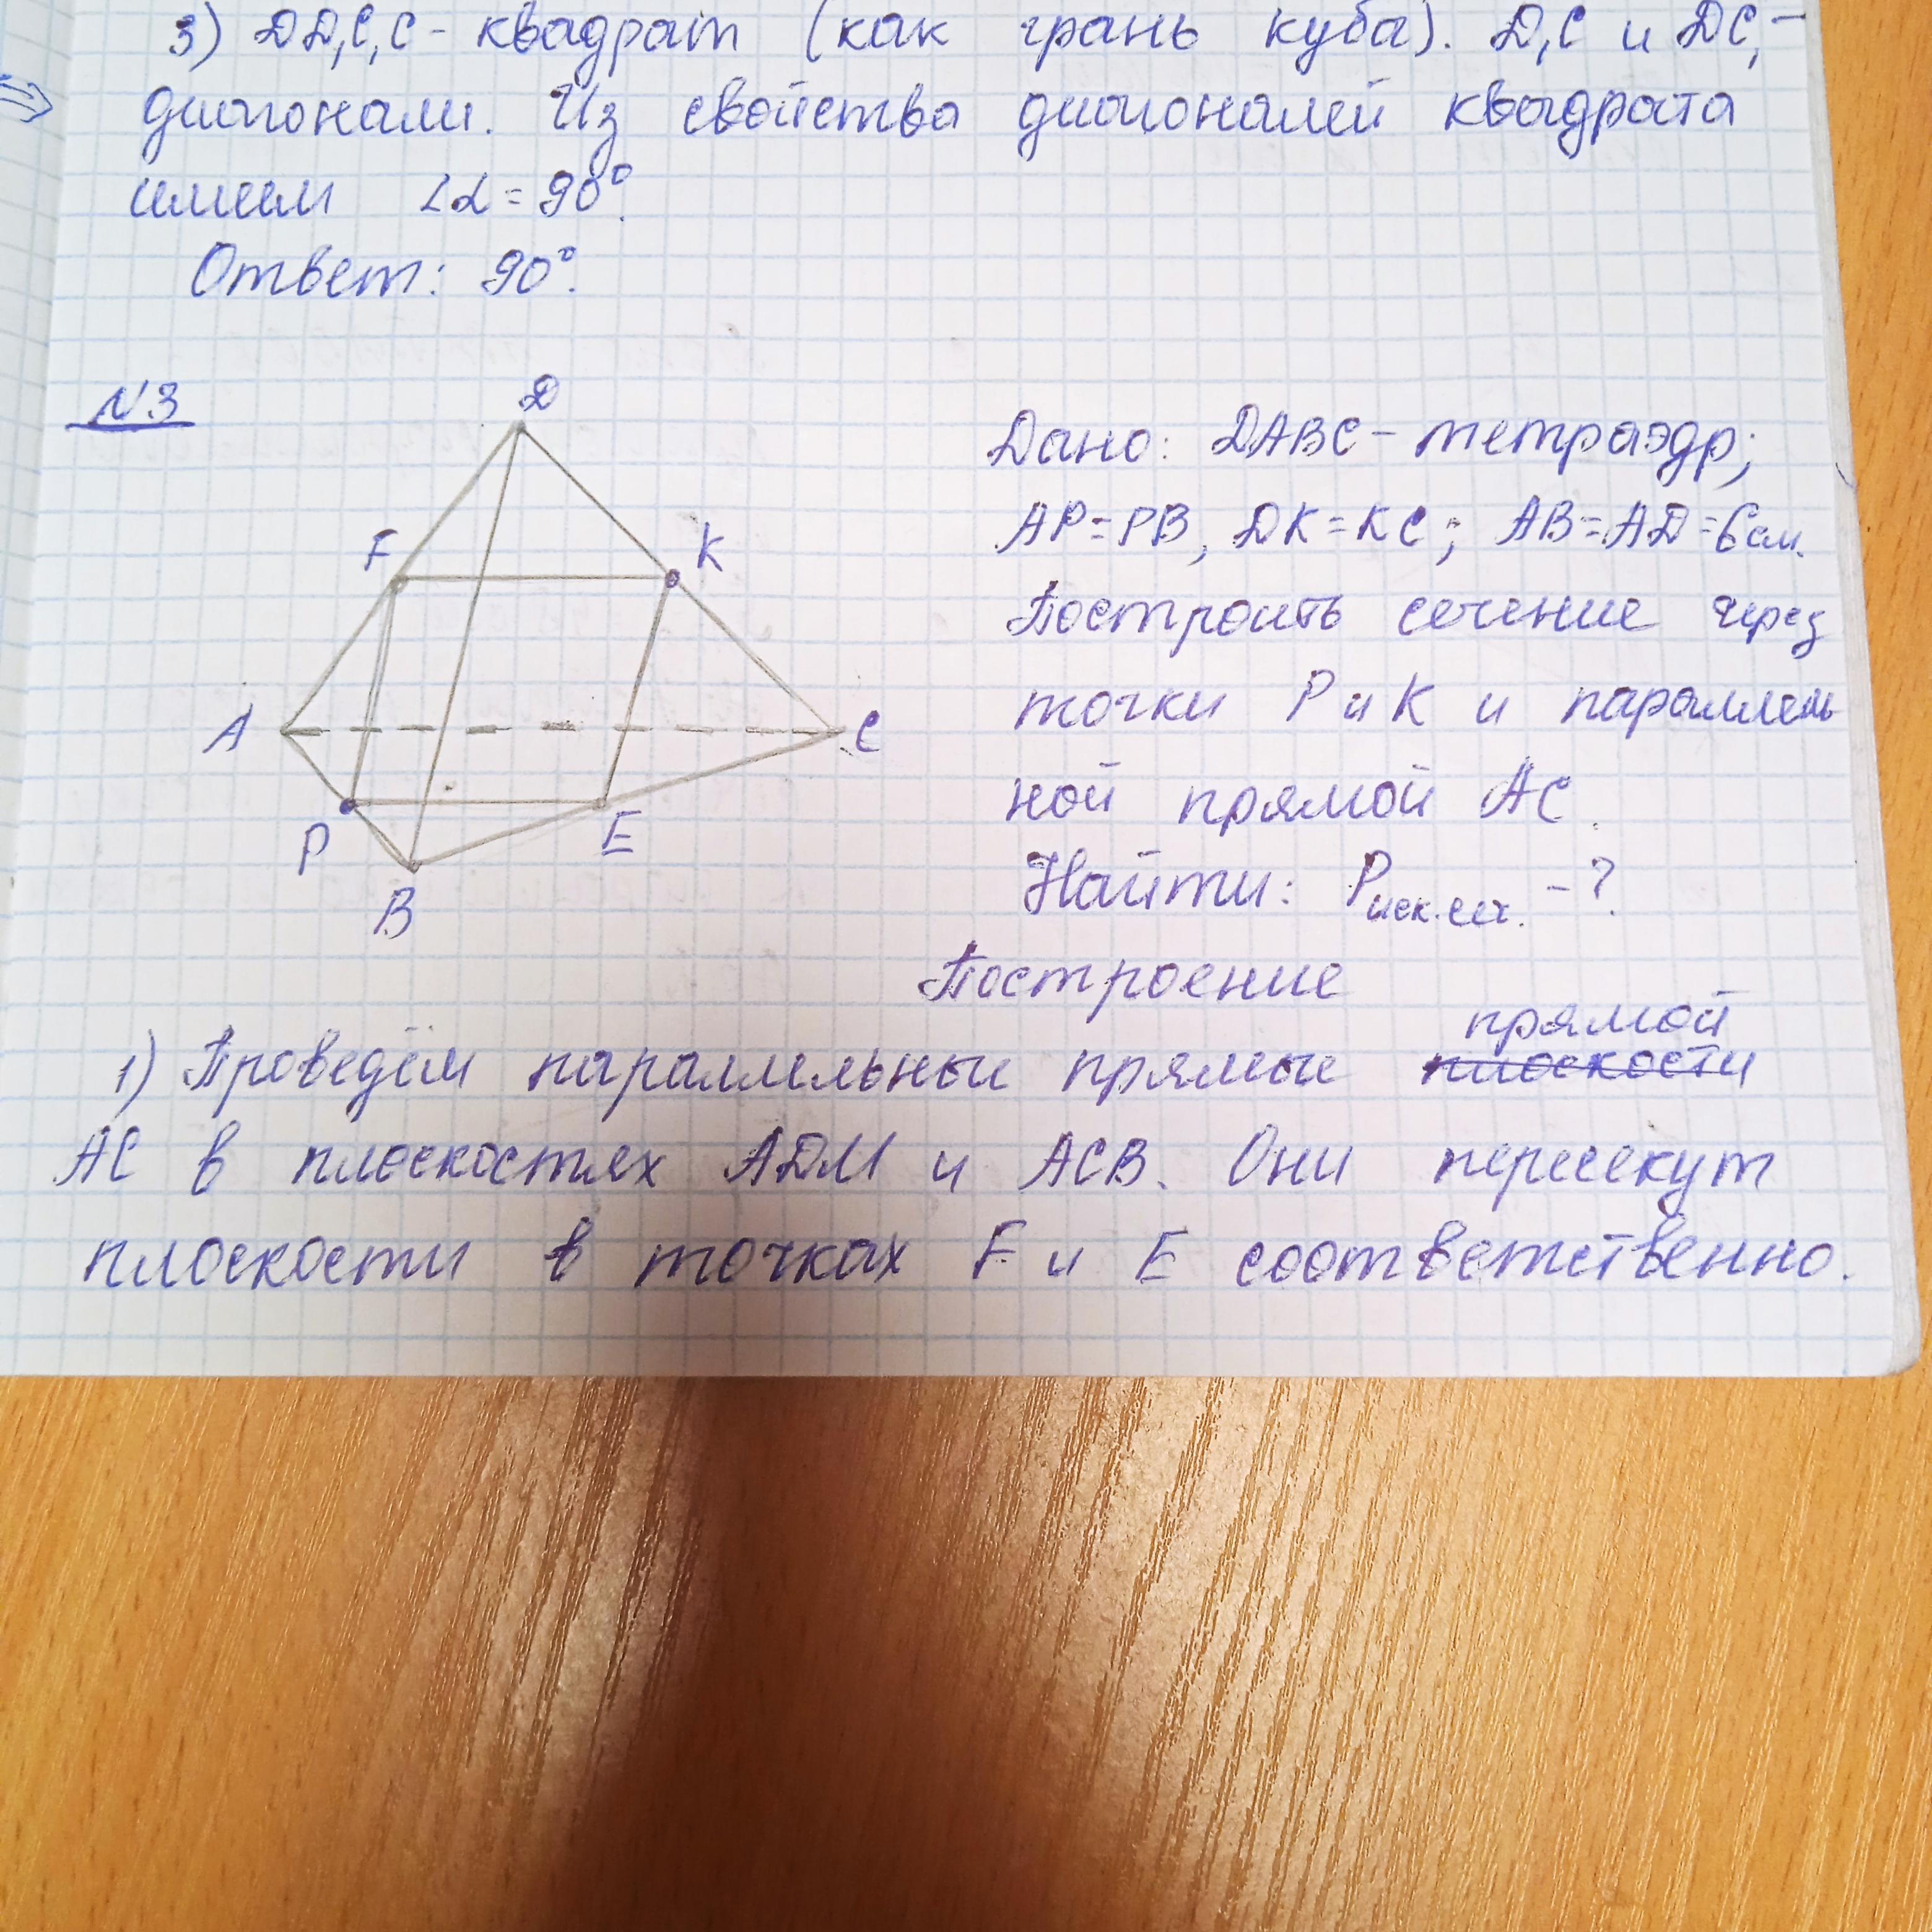 3) DD₁C₁C - квадрат (как грань куба). D₁C и DC₁ -
⇒ диагонали. Из свойства диагоналей квадрата
имеем ∠α = 90°.
Ответ: 90°.
N3
D
F
K
A
C
P
E
B
Дано: DABC - тетраэдр;
AP = PB, DK = KC; AB = AD = 6 см.
Построить сечение через
точки P и K и параллель
ной прямой AC.
Найти: Pиск.сеч. - ?
Построение
прямой
1) Проведём параллельные прямые плоскости
AC в плоскостях ADM и ACB. Они пересекут
плоскости в точках F и E соответственно.